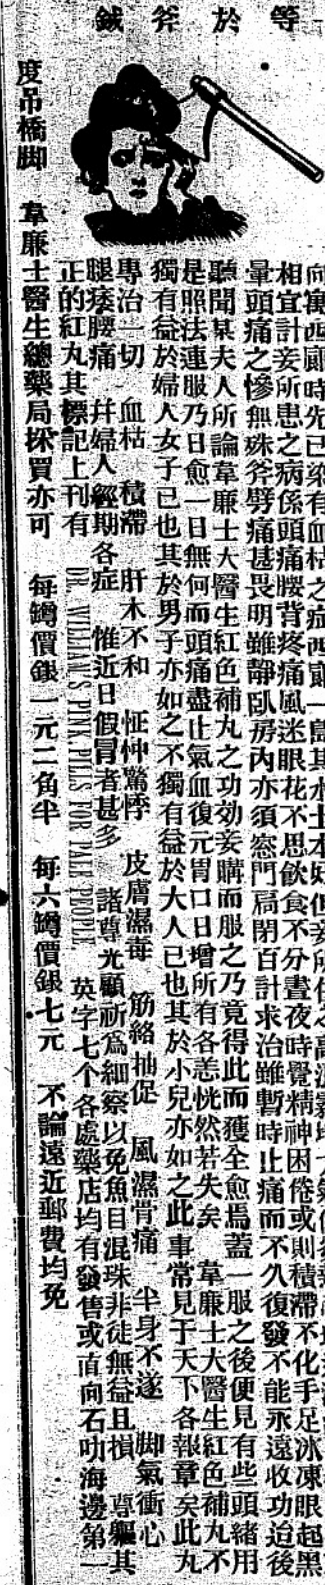 等於斧鉞
向寓西 時先已染有血枯之症西 一島其水土本好但妾所住之高
相宜計妾所患之病係頭痛腰背疼痛風迷眼花不思飲食不分晝夜時覺精神困倦或則積滯不化手足冰凍眼起黑
暈頭痛之慘無殊斧劈痛甚畏明雖靜臥房內亦須窓門扃閉百計求治雖暫時止痛而不久復發不能永遠收功迨後
聽聞某夫人所論韋廉士大醫生紅色補丸之功効妾購而服之乃竟得此而獲全愈焉蓋一服之後便見有些頭緒用
是照法連服乃日愈一日無何而頭痛盡止氣血復元胃口日增所有各恙恍然若失矣 韋廉士大醫生紅色補丸不
獨有益於婦人女子已也其於男子亦如之不獨有益於大人已也其於小兒亦如之此事常見于天下各報章矣此丸
專治一切 血枯 積滯 肝木不和 怔忡驚悸 皮膚濕毒 筋絡抽促 風濕骨痛 半身不遂 脚氣衝心
腿痿腰痛 幷婦人經期各症 惟近日假冒者甚多 諸尊光顧祈爲細察以免魚目混珠非徒無益且損 尊軀其
正的紅丸其標記上刊有 DR. WILLIAMS PINK PILLS FOR PALE PEOPLE 英字七个各處藥店均有發售或直向石叻海邊第一
度吊橋脚 韋廉士醫生總藥局採買亦可 每罇價銀一元二角半 每六罇價銀七元 不論遠近郵費均免